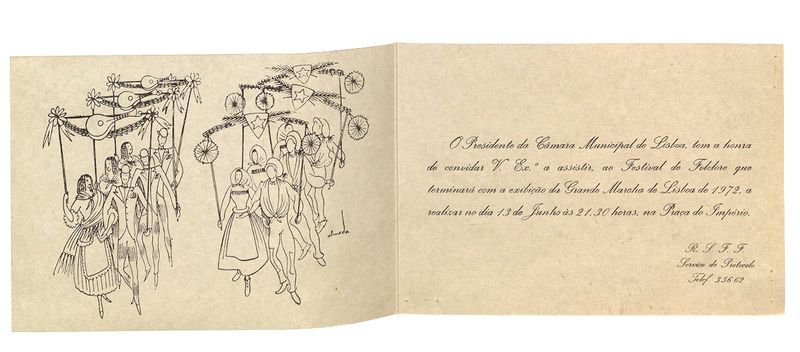 almada
O Presidente da Câmara Municipal de Lisboa, tem a honra
de convidar V. Ex.ª a assistir, ao Festival de Folclore que
terminará com a exibição da Grande Marcha de Lisboa de 1972, a
realizar no dia 13 de Junho às 21.30 horas, na Praça do Império.
R. S. F. F
Serviço de Protocolo
Telef. 35662